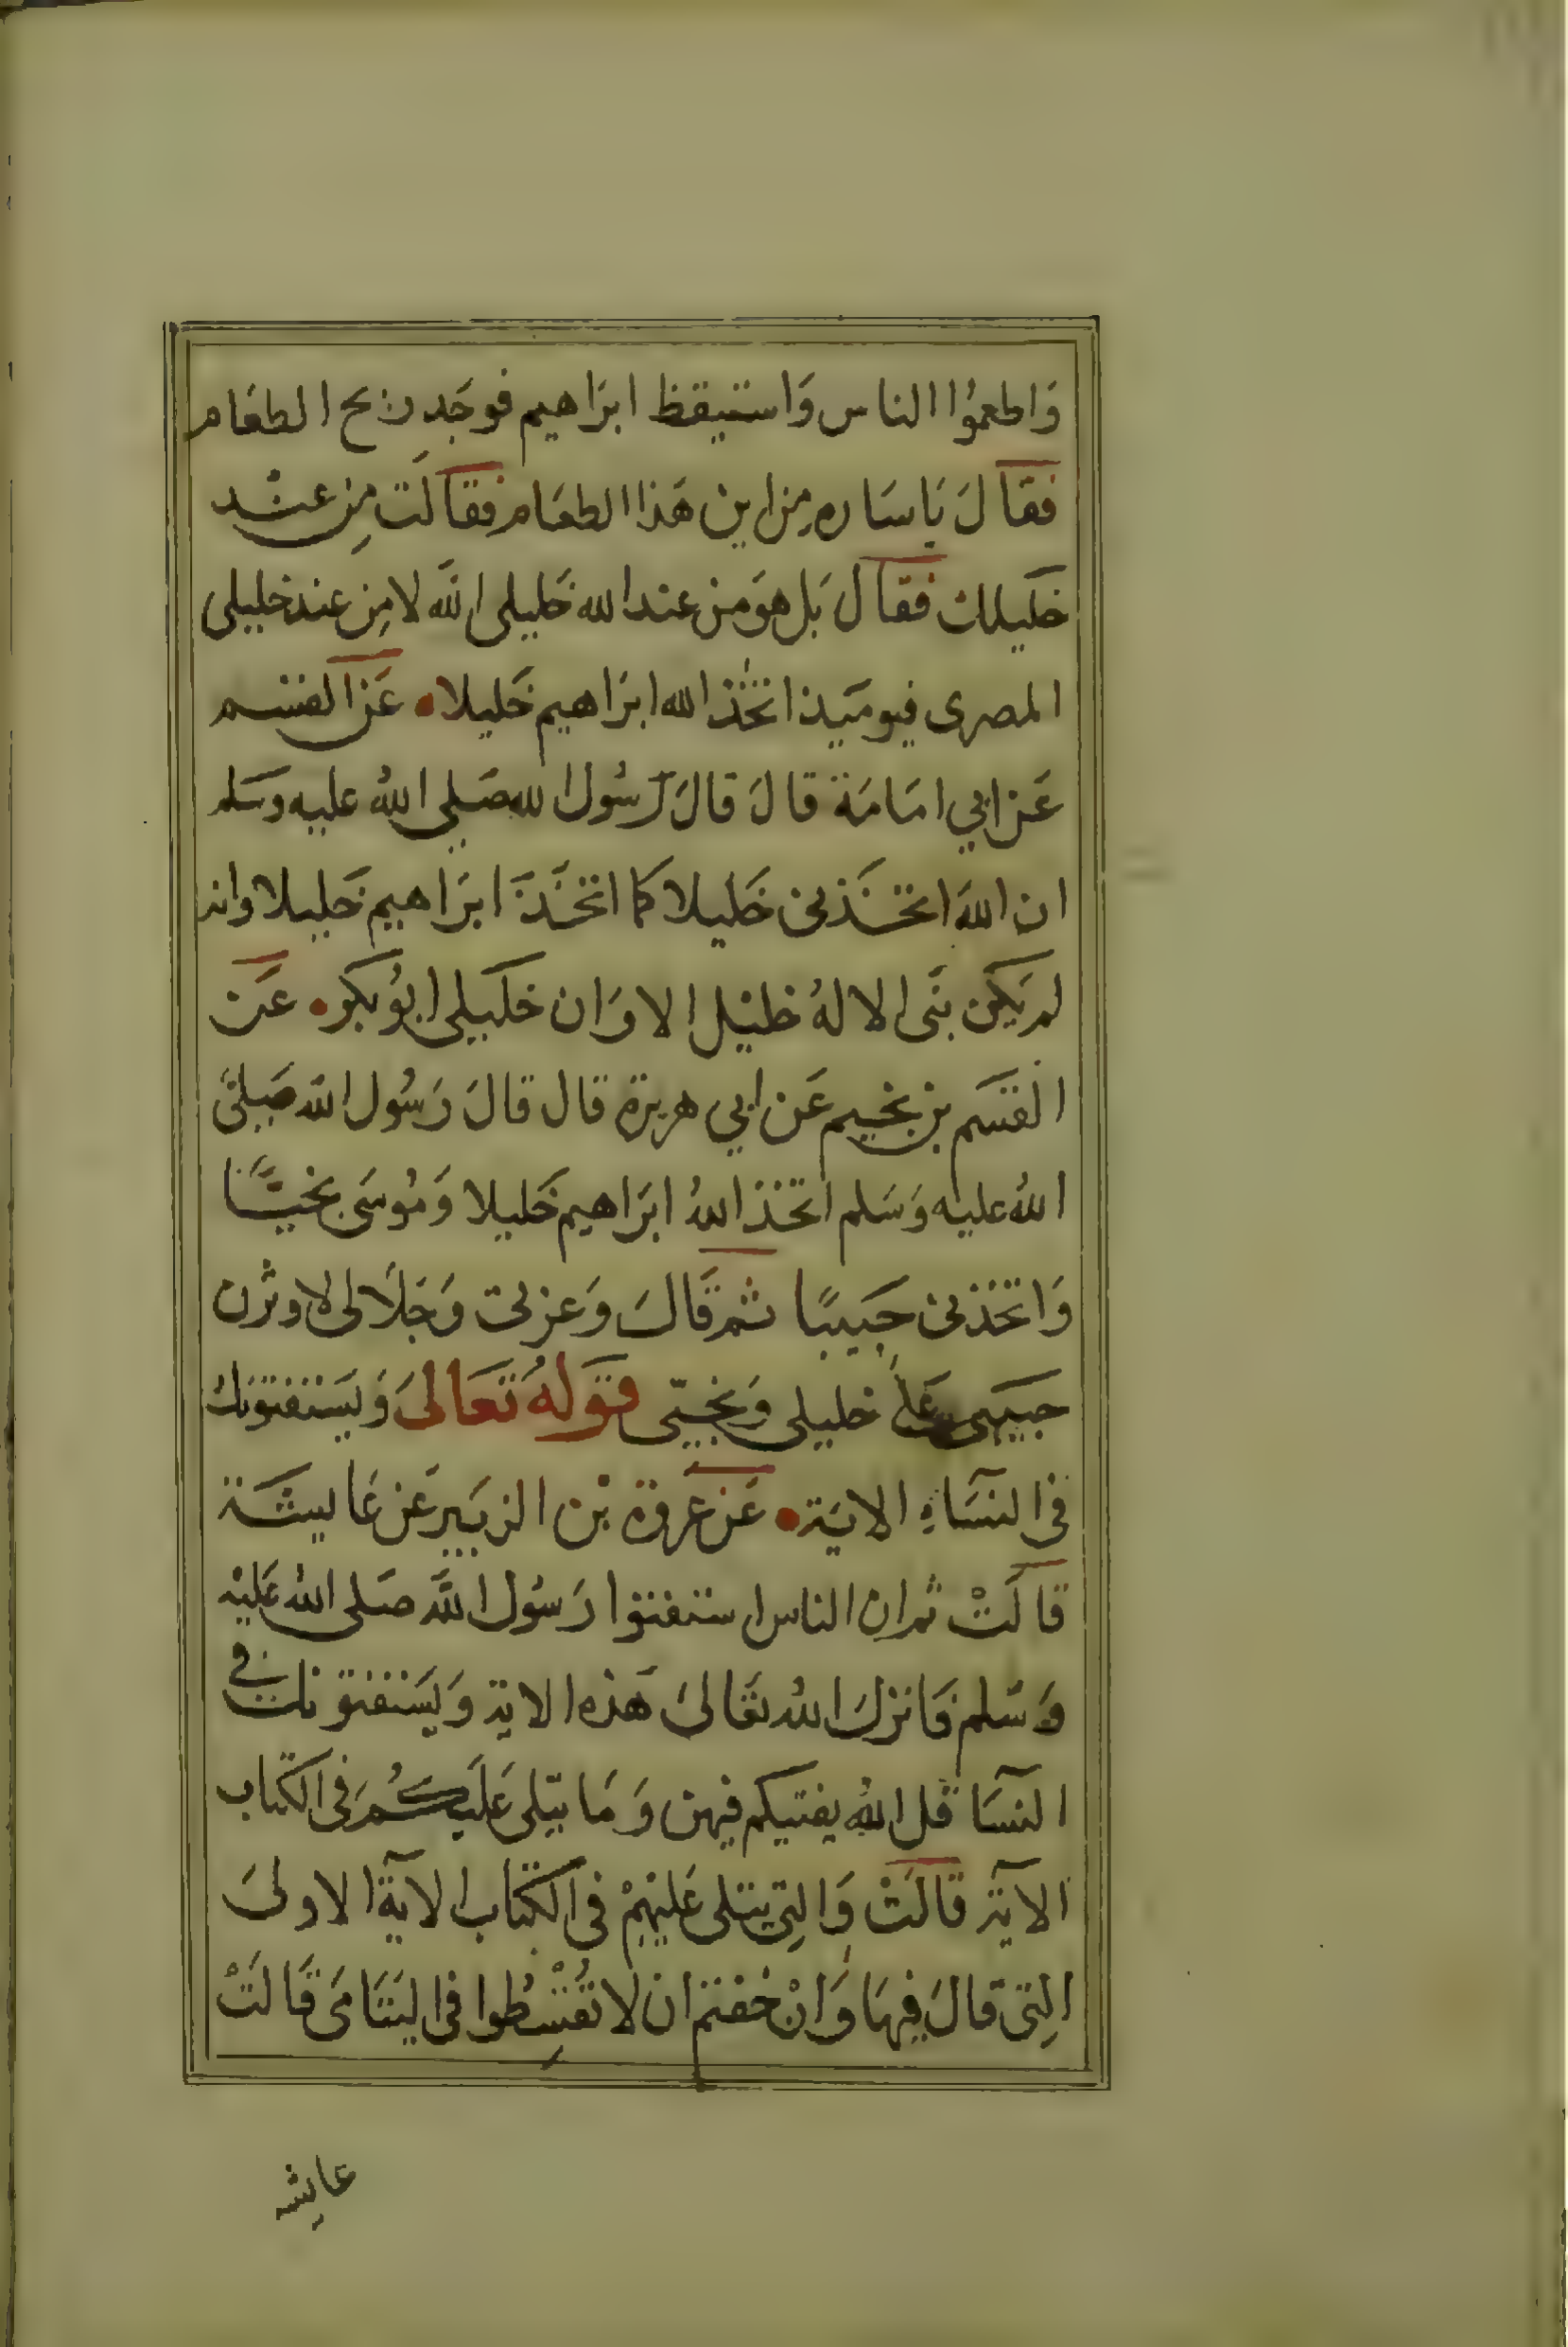 وَاطعمُوا الناس وَاستيقظ ابرَاهيم فوجَد ريح الطعَام
فقَالَ يَا سَاره مِن اين هَذا الطعَام فقَالَت مِن عند
خَليلك فقَالَ بَل هوَ من عند الله خَليلى الله لا مِن عند خليلى
المصرى فيومَيذ اتخَذ الله ابرَاهيم خَليلا • عَن القسم
عَن ابي امَامَة قالَ قالَ رَسُول الله صَلى اللهُ عليه وسَلم
ان اللهَ اتخَذنى خَليلا كما اتخَذَ ابرَاهيم خَليلا وانه
لم يَكن نبَى الا لهُ خليل الا وَان خَليلى ابوُ بكر • عَن
القسَم بن بخيم عَن ابي هريرة قال قالَ رَسُول الله صَلىَ
اللهُ عليه وَسَلم اتخذ اللهُ ابرَاهيم خَليلا وَمُوسَى نجيًّا
وَاتخَذنى حَبيبًا ثم قَالَ وَعزتى وَجَلَالى لاوثرن
حبيبى عَلَى خليلى وَنجيّى قَولهُ تَعَالىَ وَيَستفتونك
فى النسَاءِ الايَة • عَن عروة بْن الزبَير عَن عَاليشَة
قالَتْ ثم ان الناس استفتوا رَسُول اللَّه صَلى الله عَليْه
وَسَلم فَانزلَ اللهُ تعَالىَ هَذه الاية وَيَستفتونك فى
النسَا قل اللهُ يفتيكم فيهن وَمَا يتلى عَلَيكُم فى الكتاب
الآية قالَتْ وَالتِى يتلى عَليْهِمْ فى الكتاب الآية الاولىَ
التِى قالَ فيهَا وَانْ خفتم ان لا تُقْسِطُوا فى اليَتَامَى قَالَتْ
عايشه